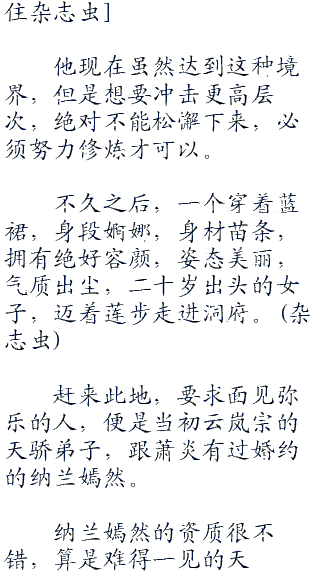 住杂志虫]
他现在虽然达到这种境
界，但是想要冲击更高层
次，绝对不能松懈下来，必
须努力修炼才可以。
不久之后，一个穿着蓝
裙，身段婀娜，身材苗条，
拥有绝好容颜，姿态美丽，
气质出尘，二十岁出头的女
子，迈着莲步走进洞府。(杂
志虫)
赶来此地，要求面见弥
乐的人，便是当初云岚宗的
天骄弟子，跟萧炎有过婚约
的纳兰嫣然。
纳兰嫣然的资质很不
错，算是难得一见的天